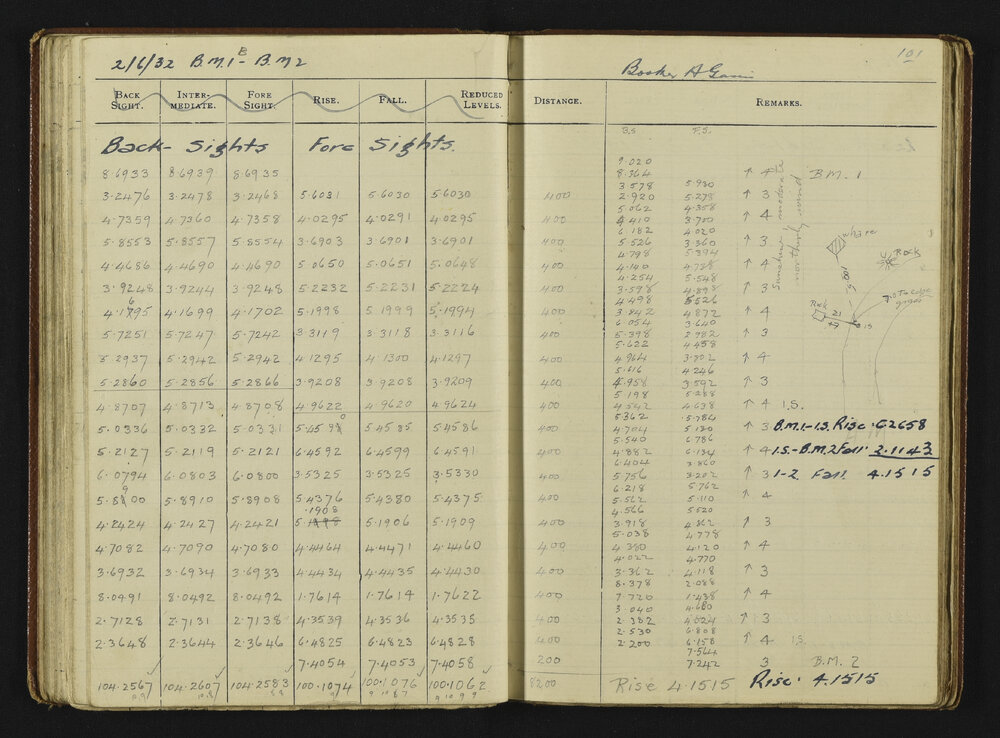 2/6/32 B.M.1 - B.M2
101
BACK SIGHT. INTER-MEDIATE. FORE SIGHT. RISE. FALL. REDUCED LEVELS. DISTANCE. REMARKS.
Back- Sights Fore Sights.
B.S F.S.
8.6933 8.6939 8.6935
3.2476 3.2478 3.2468 5.6031 5.6030 5.6030 400
4.7359 4.7360 4.7358 4.0295 4.0291 4.0295 400
5.8553 5.8557 5.8554 3.6903 3.6901 3.6901 400
4.4686 4.4690 4.4690 5.0650 5.0651 5.0648 400
3.9248 3.9244 3.9248 5.2232 5.2231 5.2224 400
4.1795 4.1699 4.1702 5.1998 5.1999 5.1994 400
5.7251 5.7247 5.7242 3.3119 3.3118 3.3116 400
5.2937 5.2942 5.2942 4.1295 4.1300 4.1297 400
5.2860 5.2856 5.2866 3.9208 3.9208 3.9209 400
4.8707 4.8713 4.8708 4.9622 4.9620 4.9624 400
5.0336 5.0332 5.0331 5.4585 5.4586 400
5.2127 5.2119 5.2121 6.4592 6.4599 6.4591 400
6.0794 6.0803 6.0800 3.5325 3.5325 3.5330 400
5.8910 5.8908 5.4376 5.4380 5.4375 400
.1908
4.2424 4.2427 4.2421 5.1906 5.1909 400
4.7082 4.7090 4.7080 4.4464 4.4471 4.4460 400
3.6932 3.6934 3.6933 4.4434 4.4435 4.4430 400
8.0491 8.0492 8.0492 1.7614 1.7614 1.7622 400
2.7128 2.7131 2.7138 4.3539 4.3536 4.3535 400
2.3648 2.3644 2.3646 6.4825 6.4823 6.4828 400
7.4054 7.4053 7.4058 200
104.2567 104.2607 104.2583 100.1074 100.1076 100.1062 8200
9.020
8.364 ↑ 4 B.M. 1
3.578 5.930
2.920 5.278 ↑ 3
5.062 4.358
4.410 3.700 ↑ 4
6.182 4.020
5.526 3.360 ↑ 3
4.798 5.394
4.140 4.738 ↑ 4
4.254 5.548
3.598 4.898 ↑ 3
4.498 5.526
3.842 4.872 ↑ 4
6.054 3.640
5.398 2.982 ↑ 3
5.622 4.458
4.964 3.802 ↑ 4
5.616 4.246
4.958 3.592 ↑ 3
5.198 5.288
4.542 4.638 ↑ 4 I.S.
5.362 5.784
4.704 5.130 ↑ 3
5.540 6.786
4.882 6.134 ↑ 4
6.404 3.860
5.756 3.202 ↑ 3
6.218 5.762
5.562 5.110 ↑ 4
4.566 5.520
3.918 4.862 ↑ 3
5.038 4.778
4.380 4.120 ↑ 4
4.022 4.770
3.362 4.118 ↑ 3
8.378 2.088
7.720 1.438 ↑ 4
3.040 4.680
2.382 4.024 ↑ 3
2.530 6.808
2.200 6.158 ↑ 4 I.S.
7.564
7.242 3 B.M. 2
Sunshine & moderate
northerly wind
whare
Rock
Rock
B.M.1-I.S. Rise: 6.2658
I.S.-B.M.2 Fall 2.1143
1-2 Fall 4.1515
Rise 4.1515 Rise. 4.1515